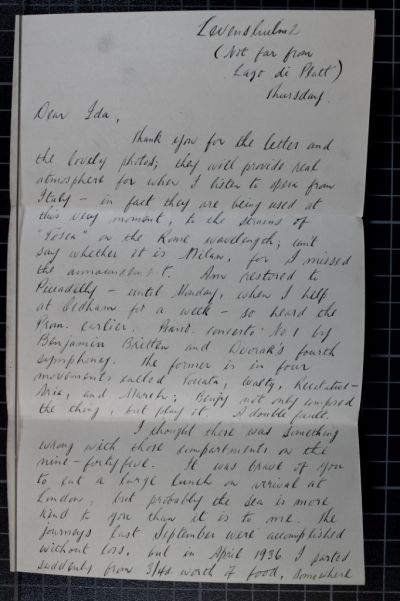 Levenshulme
(Not far from
Lago di Platt)
Thursday.
Dear Ida,
Thank you for the letter and
the lovely photos; they will provide real
atmosphere for when I listen to opera from
Italy – in fact they are being used at
this very moment, to the strains of
"Tosca" on the Rome wavelength; can't
say whether it is Milan, for I missed
the announcement. Am restored to
Piccadilly – until Monday, when I help
at Oldham for a week – so heard the
Prom. earlier. Piano concerto No 1 by
Benjamin Britten and Dvorak's fourth
symphony. The former is in four
movements called Toccata, Waltz, Recitative –
Aria, and March; Benjy not only composed
the thing, but played it. A double fault.
I thought there was something
wrong with those compartments on the
nine-fortyfive. It was brave of you
to eat a large lunch on arrival at
London, but probably the sea is more
kind to you than it is to me. The
journeys last September were accomplished
without loss, but in April 1936 I parted
suddenly from 3/4d. worth of food, somewhere